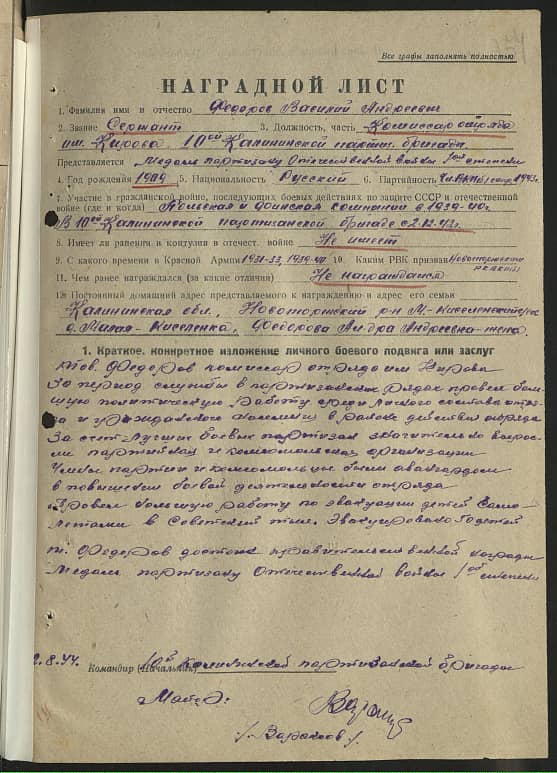 Все графы заполнять полностью
НАГРАДНОЙ ЛИСТ
1. Фамилия имя и отчество Федоров Василий Андреевич
2. Звание Сержант 3. Должность, часть Комиссар отряда
им. Кирова 10ой Калининской партиз. бригады
Представляется Медаль партизану Отечественной войны 1ой степени
4. Год рождения 1909 5. Национальность Русский 6. Партийность 1943г.
7. Участие в гражданской войне, последующих боевых действиях по защите СССР и отечественной
войне (где и когда) Польская и финская компании в 1939-40г.
В 10ой Калининской партизанской бригаде с
8. Имеет ли ранения и контузия в отечест. войне Не имеет
9. С какого времени в Красной Армии 1931-33, 1939-40 10. Каким РВК призван Новоторжским
11. Чем ранее награждался (за какие отличия) Не награждался
12. Постоянный домашний адрес представляемого к награждению и адрес его семьи
Калининская обл., Новоторжский р-н М-Киселенский с/с
д. Малая-Киселенка, Федорова Ал-дра Андреевна-жена.
1. Краткое, конкретное изложение личного боевого подвига или заслуг
Тов. Федоров комиссар отряда им Кирова
За период службы в партизанских рядах провел боль-
шую политическую работу среди личного состава отря-
да и гражданского населения в районе действия отряда
За счет лучших боевых партизан значительно вырос-
ли партийная и комсомольская организации
Члены партии и комсомольцы были авангардом
в повышении боевой деятельности отряда
Провел большую работу по эвакуации детей само-
летами в Советский тыл. Эвакуировано детей
т. Федоров достоин правительственной награды
Медаль партизану Отечественной войны 1ой степени
2.8.44. Командир (Начальник) 10ой Калининской партизанской бригады
Майор:
/ Вараксов /